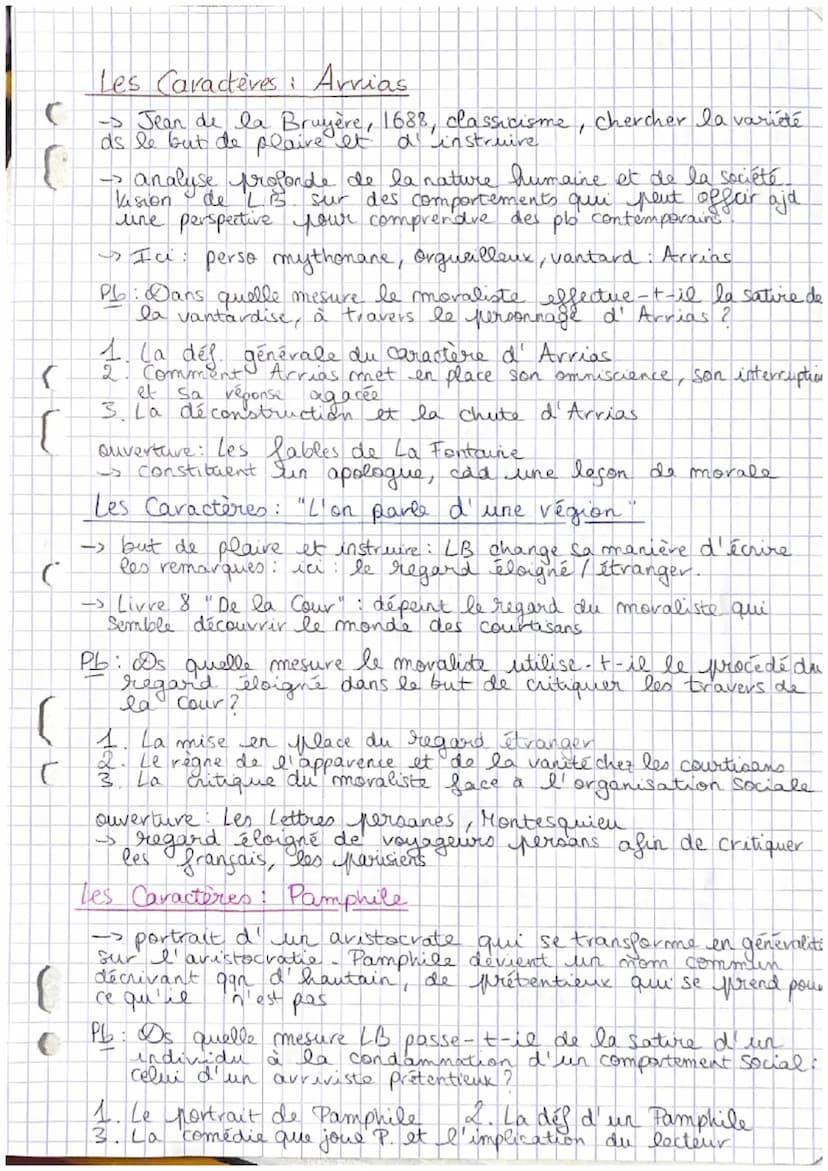 Les Caractères : Arrias
-> Jean de la Bruyère, 1688, classicisme, chercher la variété
ds le but de plaire et d'instruire
-> analyse profonde de la nature humaine et de la société.
Vision de LB. sur des comportements qui peut offrir ajd
une perspective pour comprendre des pb contemporains.
-> Ici : perso mythonane, orgueilleux, vantard : Arrias
Pb : Dans quelle mesure le moraliste effectue-t-il la satire de
la vantardise, à travers le personnage d'Arrias ?
1. La déf. générale du caractère d'Arrias
2. Comment Arrias met en place son omniscience, son interruption
et sa réponse agacée
3. La déconstruction et la chute d'Arrias
ouverture : Les Fables de La Fontaine
-> constituent un apologue, càd une leçon de morale
Les Caractères : "L'on parle d'une région"
-> but de plaire et instruire : LB change sa manière d'écrire
les remarques : ici : le regard éloigné / étranger.
-> Livre 8 "De la Cour" : dépeint le regard du moraliste qui
semble découvrir le monde des courtisans
Pb : Ds quelle mesure le moraliste utilise-t-il le procédé du
regard éloigné dans le but de critiquer les travers de
la cour ?
1. La mise en place du regard étranger
2. Le règne de l'apparence et de la vanité chez les courtisans
3. La critique du moraliste face à l'organisation sociale
ouverture : Les Lettres persanes, Montesquieu
-> regard éloigné de voyageurs persans afin de critiquer
les français, les parisiens
Les Caractères : Pamphile
-> portrait d'un aristocrate qui se transforme en généralité
sur l'aristocratie. Pamphile devient un nom commun
décrivant qqn d'hautain, de prétentieux qui se prend pour
ce qu'il n'est pas
Pb : Ds quelle mesure LB passe-t-il de la satire d'un
individu à la condamnation d'un comportement social :
celui d'un arriviste prétentieux ?
1. Le portrait de Pamphile 2. La déf d'un Pamphile
3. La comédie que joue P. et l'implication du lecteur